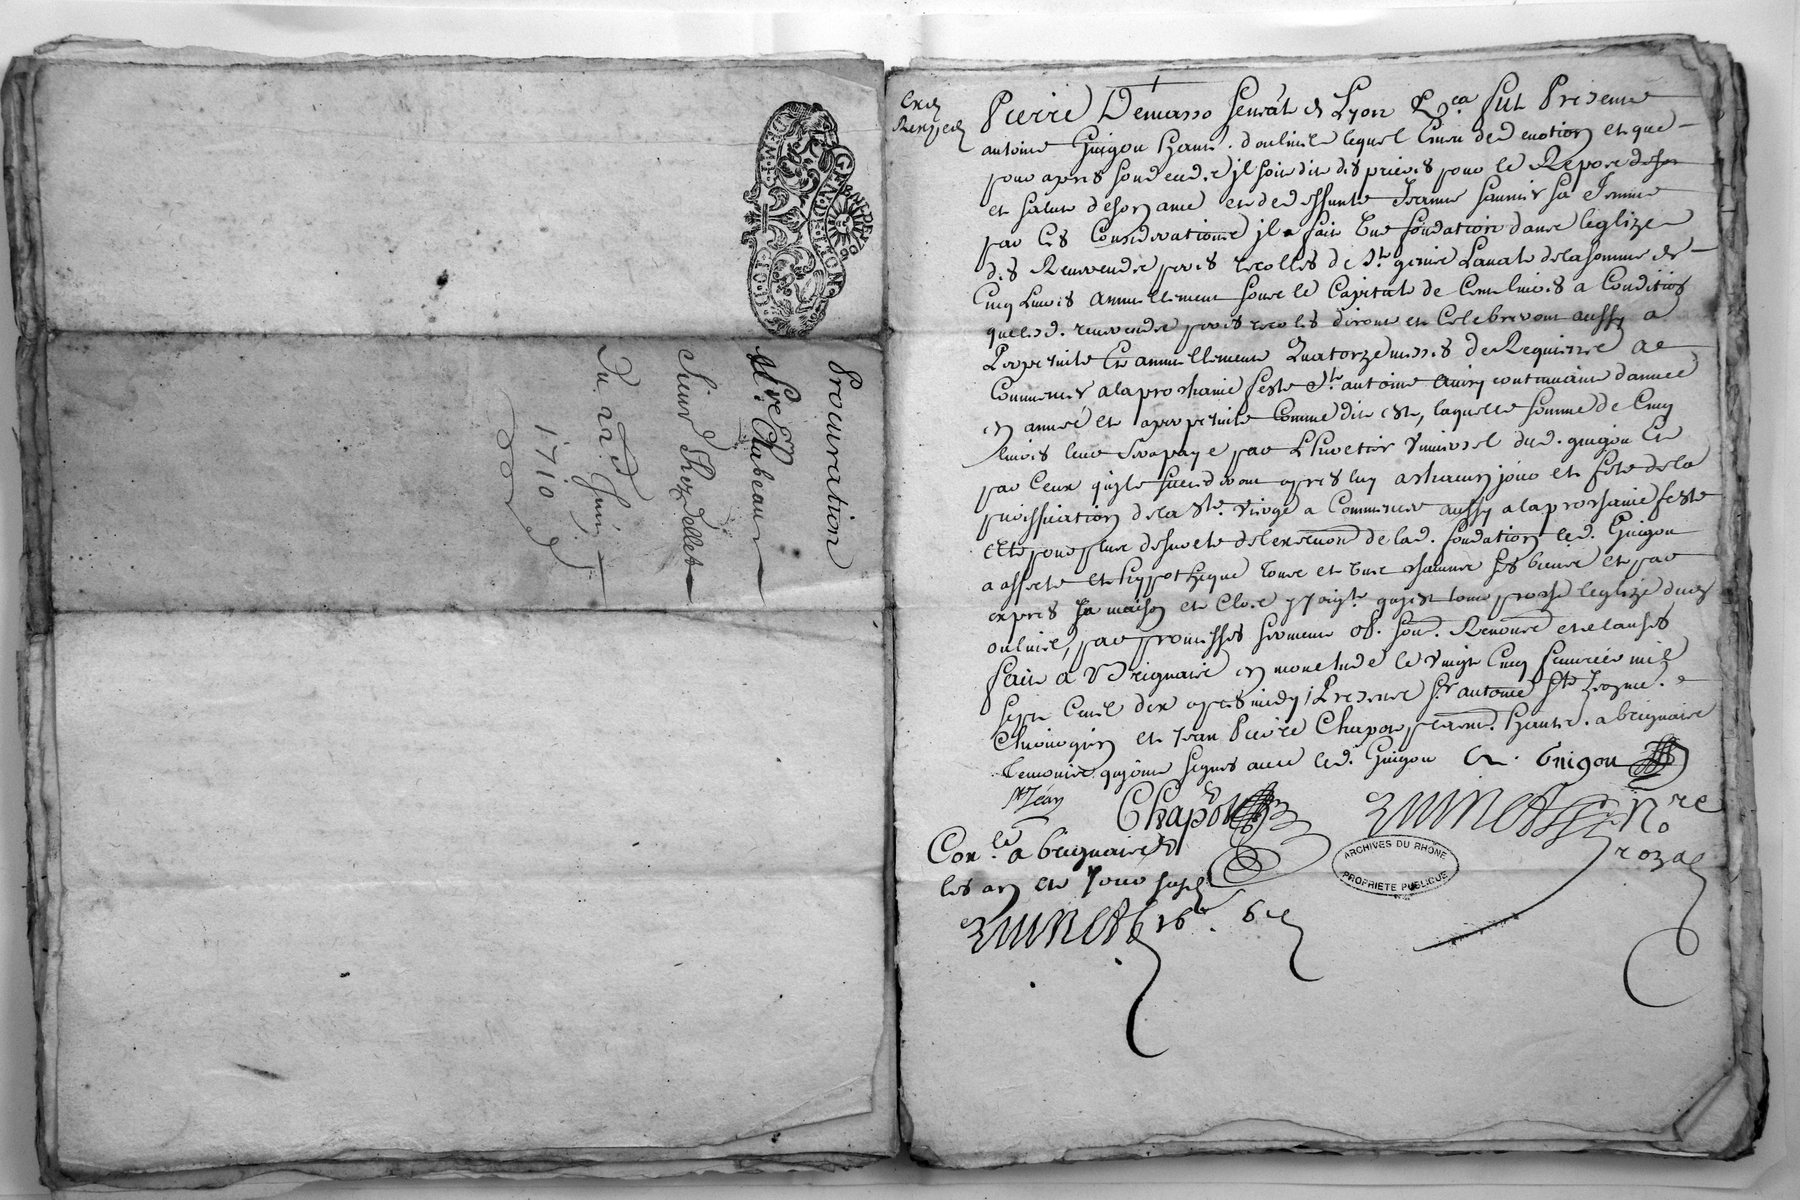 Procuration
Sieur
Du 22e Juin
1710
GEN DE LYON
Pierre Demasso Senēal de Lyon Fut Presente
antoine Guigou hantt. doulmie lequel Emeu de devotion et que
pour apres son deude jl soit dit des prieres pour le Repos de son
et salut de son ame et de deffunte Jeanne sa femme
par Ces Considerations jl a fait Une fondation dans leglize
des Reuerende peres recolles de St. genis Laual de la somme de
Cinq Liures annuellement sous le Capital de Cent liures a Condition
que lesd. reuerends peres recoles diront et Celebreront aussy a
Perpetuité et annuellement quatorze messes de Requiem a
Commencer a la prochaine feste St. antoine ainsy continuaire dannee
en annee et a perpetuité Comme dit est, laquelle somme de Cinq
liures leur sera payé par Lheretier Uniuersel dud. guigou et
par Ceux quy le suiuront apres luy a chacun jour et feste de la
purification de la Ste. Vierge a Commencer aussy a la prochaine feste
et pour plus de surete de lexecuon de lad. fondation led. Guigou
a affecté et hypothequé tous et Uns chacuns ses biens et par
expres sa maison et Clos quy est tout proche leglize dud.
oulmie, par promesses serment obl. soub. Renonc et clauses
fait a Brignaire en mon etude le Vingt Cinq feurier mil
sept Cent dix apres midy Presents sr antoine
Chirurgien et Jean Pierre Chapot hantt. a brignaire
Temoins quy ont signes auec led. Guigou A. Guigou
St Jean
Chapot
Nre
roŷal
Conlé a brignaire
les an et jour susd
ARCHIVES DU RHÔNE
PROPRIÉTÉ PUBLIQUE